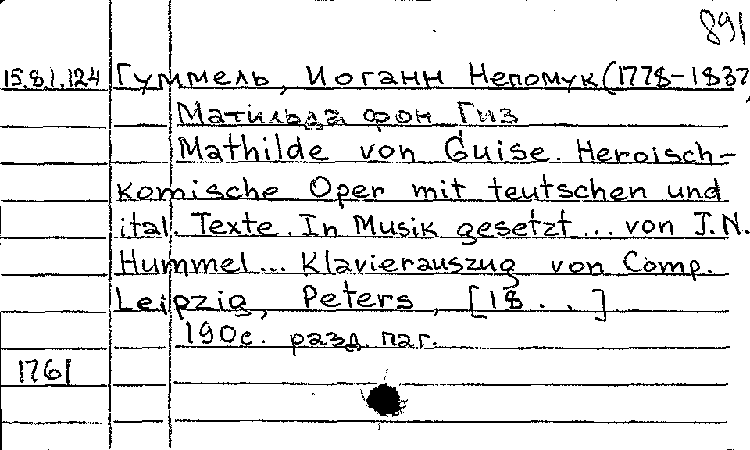 891
15.8.1.124 Гуммель, Иоганн Непомук (1778-1837)
Матильда фон Гиз
Mathilde von Guise. Heroisch-
komische Oper mit teutschen und
ital. Texte. In Musik gesetzt... von J.N.
Hummel... Klavierauszug von Comp.
Leipzig, Peters, [18 . . ]
190с. разд. паг.
1761